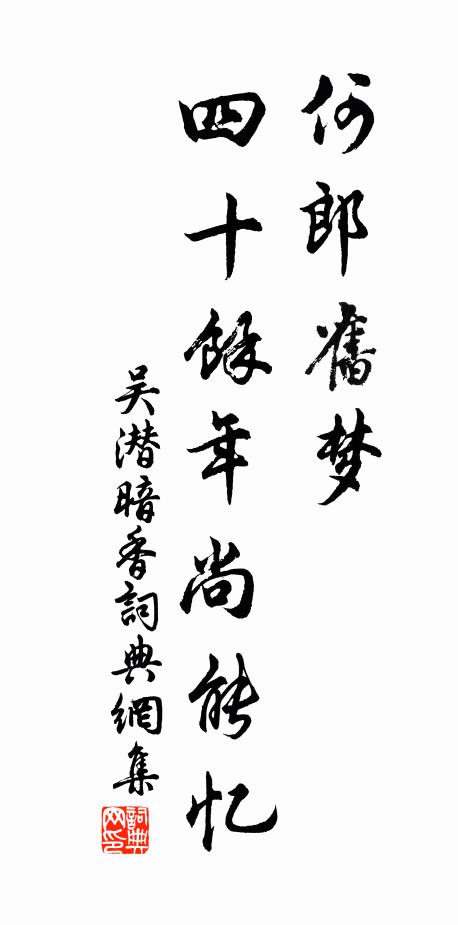 何郎舊梦
四十餘年尚能忆
吴潜暗香詞典網集
詞典网印